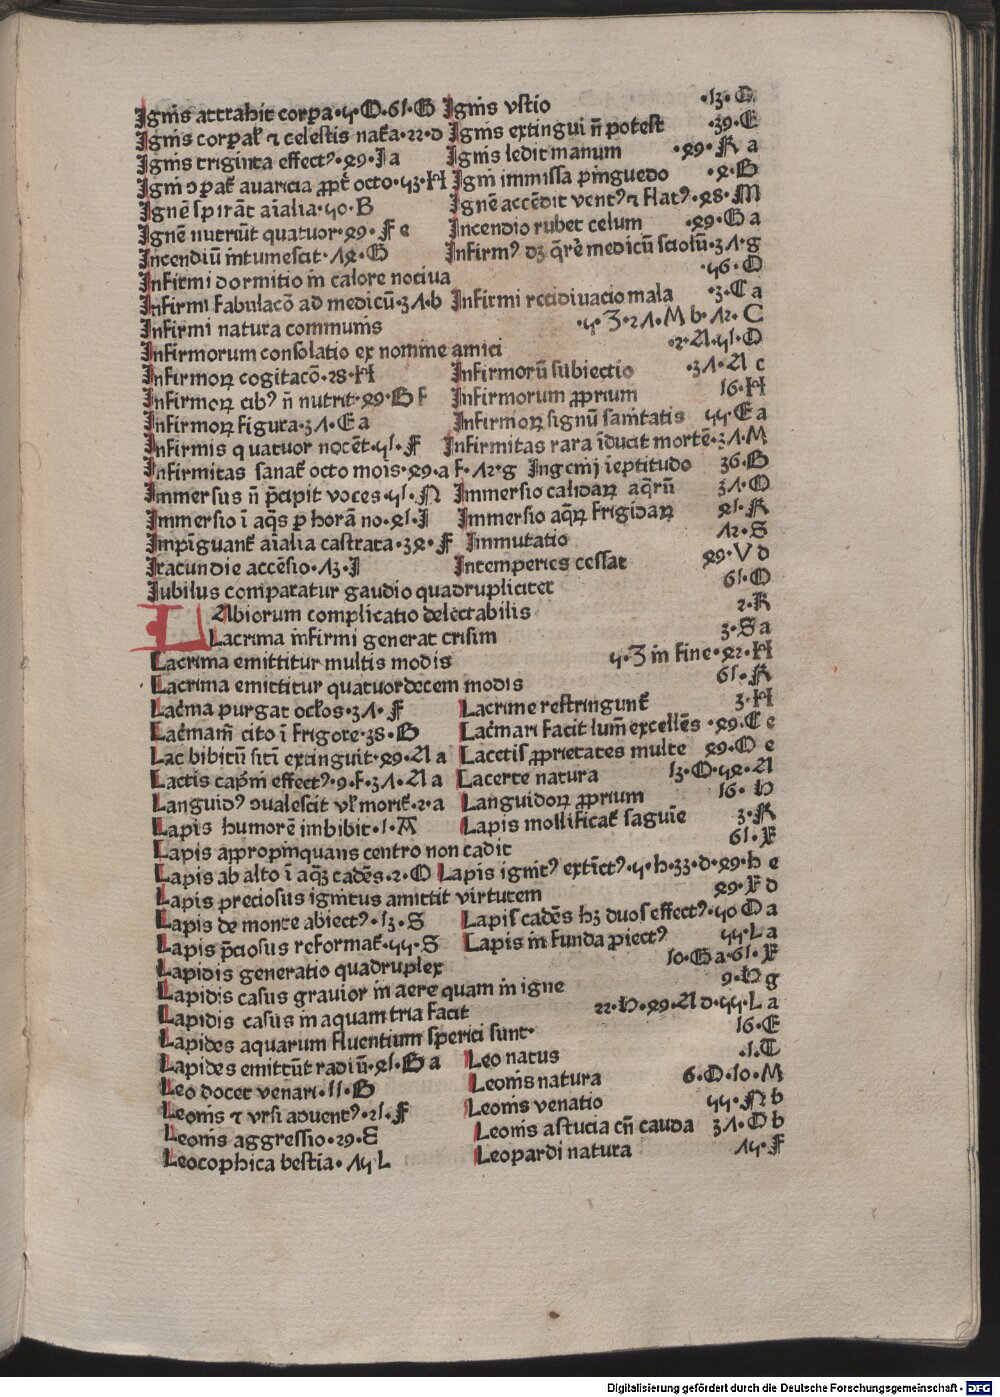 Ignis attrahit corpa·5·O·61·G Ignis vstio ·13·O
Ignis corpaƚ ⁊ celestis nať̄a·22·d Ignis extingui n̄ potest ·39·E
Ignis triginta effectꝰ·29·I a Ignis ledit manum ·29·K a
auaricia ꝓpť octo·53·H Igni immissa pinguedo ·2·B
Ignē spirāt aīalia·50·B Ignē accēdit ventꝰ ⁊ flatꝰ·28·M
Ignē nutriūt quatuor·29·F e Incendio rubet celum ·29·G a
Incendiū intumescit·12·G Infirmꝰ dꝫ q̄rē medicū sciosū·37·g
Infirmi dormitio in calore nociua ·56·O
Infirmi fabulacō ad medicū·37·b Infirmi recidiuacio mala ·3·C a
Infirmi natura communis ·5·Z·27·M b·72·C
Infirmorum consolatio ex nomine amici ·2·A·51·O
Infirmoꝝ cogitacō·28·H Infirmorū subiectio ·37·A c
Infirmoꝝ cibꝰ n̄ nutrit·29·B f Infirmorum ꝓprium 16·H
Infirmoꝝ figura·37·E a Infirmoꝝ signū sanitatis 55·E a
Infirmis quatuor nocēt·51·F Infirmitas rara īducit mortē·37·M
Infirmitas sanať octo mois·29·a f·72·g Ingenij īeptitudo 36·B
Immersus n̄ p̄cipit voces·51·N Immersio calidaꝝ aq̄rū 37·O
Immersio ī aq̄s p horā no·21·I Immersio aq̄ꝝ frigidaꝝ 21·K
Impīguanť aīalia castrata·32·F Immutatio 72·S
Iracundie accēsio·73·I Intemperies cessat 29·V d
Iubilus comparatur gaudio quadrupliciter 61·O
LAbiorum complicatio delectabilis 2·K
Lacrima infirmi generat crisim 3·S a
Lacrima emittitur multis modis 5·Z in fine·22·H
Lacrima emittitur quatuordecem modis 61·K
Lac̄ma purgat oclos·37·F Lacrime restringunť 3·H
Lac̄mari cito ī frigore·38·B Lac̄mari facit lumē excellēs·29·C e
Lac bibitū sitī extinguit·29·A a Lacetis ꝓprietates multe 29·O e
Lactis effectꝰ·9·f·37·A a Lacerte natura 13·O·52·A
Languidꝰ ɔualescit vƚ moriť·2·a Languidoꝝ ꝓprium 16·h
Lapis humorē imbibit·1·A Lapis mollificať saguīe 3·K
Lapis appropinquans centro non cadit 61·F
Lapis ab alto ī aq̄ꝫ cadēs·2·O Lapis ignitꝰ extīctꝰ·5·h·33·d·29·h e
Lapis preciosus ignitus amittit virtutem 29·F d
Lapis de monte abiectꝰ·13·S Lapis cadēs hꝫ duos effectꝰ·50 O a
Lapis p̄ciosus reformať·55·S Lapis in funda ꝓiectꝰ 55·L a
Lapidis generatio quadruplex 10·G a·61·F
Lapidis casus grauior in aere quam in igne 9·h g
Lapidis casus in aquam tria facit 22·h·29·A d·55·L a
Lapides aquarum fluentium sperici sunt· 16·E
Lapides emittūt radiū·21·G a Leo natus ·1·T
Leo docet venari·11·B Leonis natura 6·O·10·M
Leonis ⁊ vrsi aduentꝰ·21·F Leonis venatio 55·N b
Leonis aggressio·29·E Leonis astucia cū cauda 37·O b
Leocophica bestia·75 L Leopardi natura 75·F
Digitalisierung gefördert durch die Deutsche Forschungsgemeinschaft - DFG